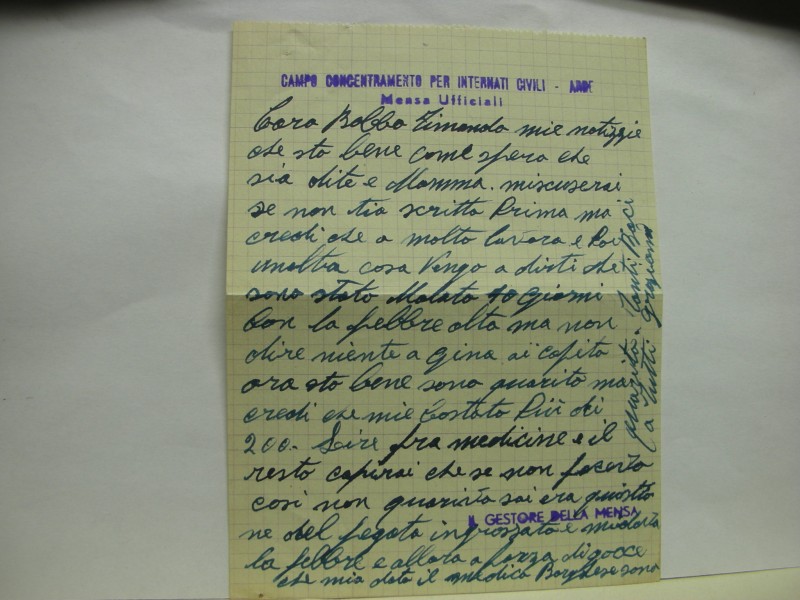 CAMPO CONCENTRAMENTO PER INTERNATI CIVILI -
Mensa Ufficiali
Caro Babbo Timando mie notizzie
che sto bene come spero che
sia di te e Mamma. mi scuserai
se non tia scritto Prima ma
credi che a molto lavoro e Poi
unaltra cosa Vengo a dirti che
sono stato Malato 10 giorni
Con la febbre alta ma non
dire niente a gina ai capito
ora sto bene sono guarito ma
credi che mie Costato Più di
200. Leire fra medicine e il
resto capirai che se non facevo
cosi non guarivo sai era questio
ne del fegato ingrossato e mi dava
IL GESTORE DELLA MENSA
la febbre e allora a forza di gocce
che mia dato il medico Borghese sono
guarito. Tanti Baci
a tutti